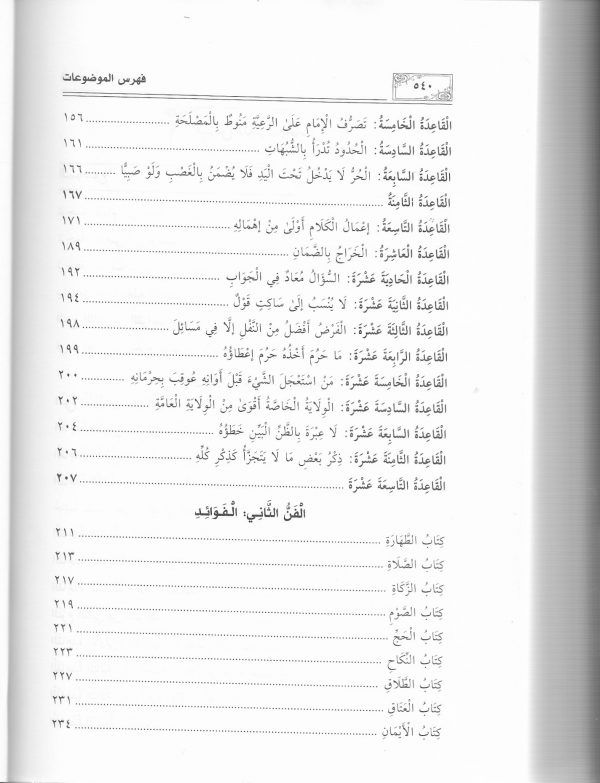 ٥٤٠ فهرس الموضوعات
الْقَاعِدَةُ الْخَامِسَةُ: تَصَرُّفُ الْإِمَامِ عَلَى الرَّعِيَّةِ مَنُوطٌ بِالْمَصْلَحَةِ ١٥٦
الْقَاعِدَةُ السَّادِسَةُ: الْحُدُودُ تُدْرَأُ بِالشُّبُهَاتِ ١٦١
الْقَاعِدَةُ السَّابِعَةُ: الْحُرُّ لَا يَدْخُلُ تَحْتَ الْيَدِ فَلَا يُضْمَنُ بِالْغَصْبِ وَلَوْ صَبِيًّا ١٦٦
الْقَاعِدَةُ الثَّامِنَةُ ١٦٧
الْقَاعِدَةُ التَّاسِعَةُ: إِعْمَالُ الْكَلَامِ أَوْلَى مِنْ إِهْمَالِهِ ١٧١
الْقَاعِدَةُ الْعَاشِرَةُ: الْخَرَاجُ بِالضَّمَانِ ١٨٩
الْقَاعِدَةُ الْحَادِيَةَ عَشْرَةَ: السُّؤَالُ مُعَادٌ فِي الْجَوَابِ ١٩٢
الْقَاعِدَةُ الثَّانِيَةَ عَشْرَةَ: لَا يُنْسَبُ إِلَى سَاكِتٍ قَوْلٌ ١٩٤
الْقَاعِدَةُ الثَّالِثَةَ عَشْرَةَ: الْفَرْضُ أَفْضَلُ مِنَ النَّفْلِ إِلَّا فِي مَسَائِلَ ١٩٨
الْقَاعِدَةُ الرَّابِعَةَ عَشْرَةَ: مَا حَرُمَ أَخْذُهُ حَرُمَ إِعْطَاؤُهُ ١٩٩
الْقَاعِدَةُ الْخَامِسَةَ عَشْرَةَ: مَنْ اسْتَعْجَلَ الشَّيْءَ قَبْلَ أَوَانِهِ عُوقِبَ بِحِرْمَانِهِ ٢٠٠
الْقَاعِدَةُ السَّادِسَةَ عَشْرَةَ: الْوِلَايَةُ الْخَاصَّةُ أَقْوَى مِنْ الْوِلَايَةِ الْعَامَّةِ ٢٠٢
الْقَاعِدَةُ السَّابِعَةَ عَشْرَةَ: لَا عِبْرَةَ بِالظَّنِّ الْبَيِّنِ خَطَؤُهُ ٢٠٤
الْقَاعِدَةُ الثَّامِنَةَ عَشْرَةَ: ذِكْرُ بَعْضِ مَا لَا يَتَجَزَّأُ كَذِكْرِ كُلِّهِ ٢٠٦
الْقَاعِدَةُ التَّاسِعَةَ عَشْرَةَ ٢٠٧
الْفَنُّ الثَّانِي: الْفَوَائِد
كِتَابُ الطَّهَارَةِ ٢١١
كِتَابُ الصَّلَاةِ ٢١٣
كِتَابُ الزَّكَاةِ ٢١٧
كِتَابُ الصَّوْمِ ٢١٩
كِتَابُ الْحَجِّ ٢٢١
كِتَابُ النِّكَاحِ ٢٢٣
كِتَابُ الطَّلَاقِ ٢٢٧
كِتَابُ الْعَتَاقِ ٢٣١
كِتَابُ الْأَيْمَانِ ٢٣٤